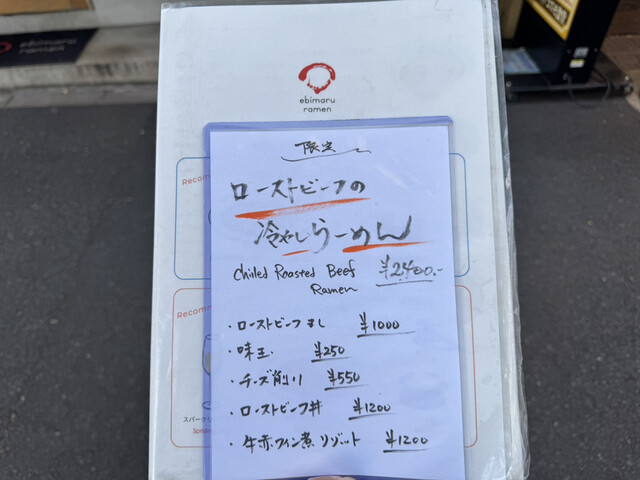 ebimaru
ramen
ebimaru
ramen
限定
ローストビーフの
冷やしらーめん
Chilled Roasted Beef ¥2,400.-
Ramen
Recom
・ローストビーフまし ¥1000
・味玉. ¥250
・チーズ削り ¥550
・ローストビーフ丼 ¥1200
・牛赤ワイン煮リゾット ¥1200
Recom
スパークリ